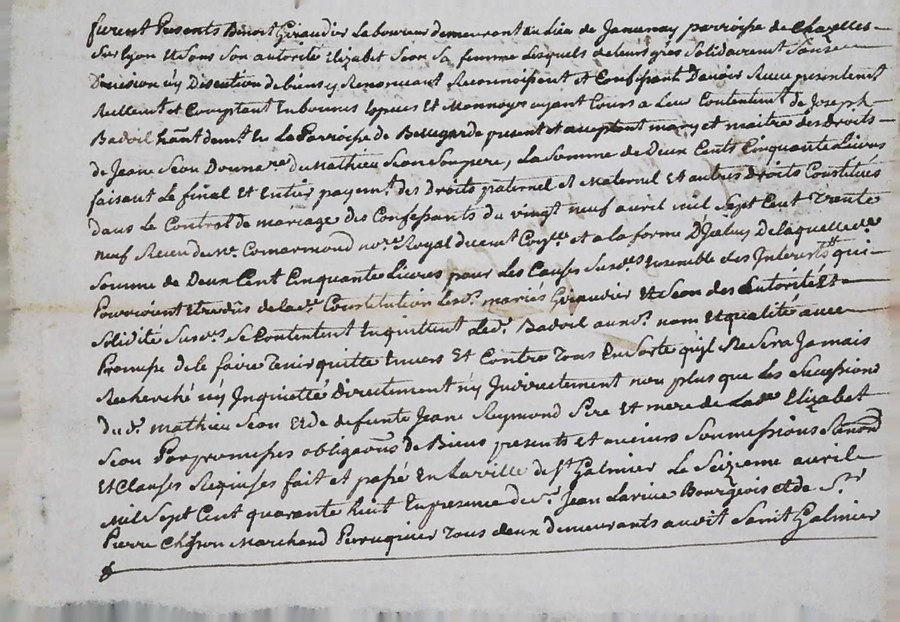 furent Presents Benoit Giraudier Laboureur demeurant du Lieu de Janunay parroisse de Chazelles
Sur lyon Et Sous Son autorité Elizabet Seon Sa femme Lesquels de leurs gres Solidairement Sans
Division ny Discution de biens y Renoncant Reconnoissent et Confessent Davoir Receu presentemt
Reellemt et Comptant En bonnes Especes Et Monnoyes ayant Cours a Leur Contentemt de Joseph
Badoil demt En La Parroisse de Bellegarde present et acceptant mary et maitre des Droits
de Jeane Seon Donnare du Mathieu Seon Son pere, La Somme de Deux Cents Cinquante Livres
faisant Le final Et Entier payemt des Droits paternel et Maternel Et autres Droits Constitués
dans Le Contrat de mariage des Confessants du vingt neuf avril mil Sept Cent Trente
neuf Receu de Me Comarmond nore Royal et a la forme De laquelle de
Somme de Deux Cent Cinquante Livres pour Les Causes Susdes Ensemble des Interestt qui
Pourroient Etre dûs de lade Constitution Lesd. mariés Giraudier Et Seon des Autorité Et
Solidité Susdes Se Contentent En quittent Led. Badoil aud. nom Et qualité avec
Promesse de le faire Tenir quitte Envers Et Contre Tous En Sorte qu'il Ne Sera Jamais
Recherché ny Inquietté Directement ny Indirectement non plus que Les Sucessions
dud. Mathieu Seon Et de defunte Jeane Reymond Pere Et mere de Lade Elizabet
Seon Par promesses obligaons de Biens presents et avenirs Soumissions Renonons
Et Clauses Requises fait et passé En La ville de St Galmier Le Seizieme avril
Mil Sept Cent quarante huit En presence de Sr. Jean Larive Bourgeois et de Sr
Pierre Marchand Peruquier Tous deux demeurants audit Saint Galmier